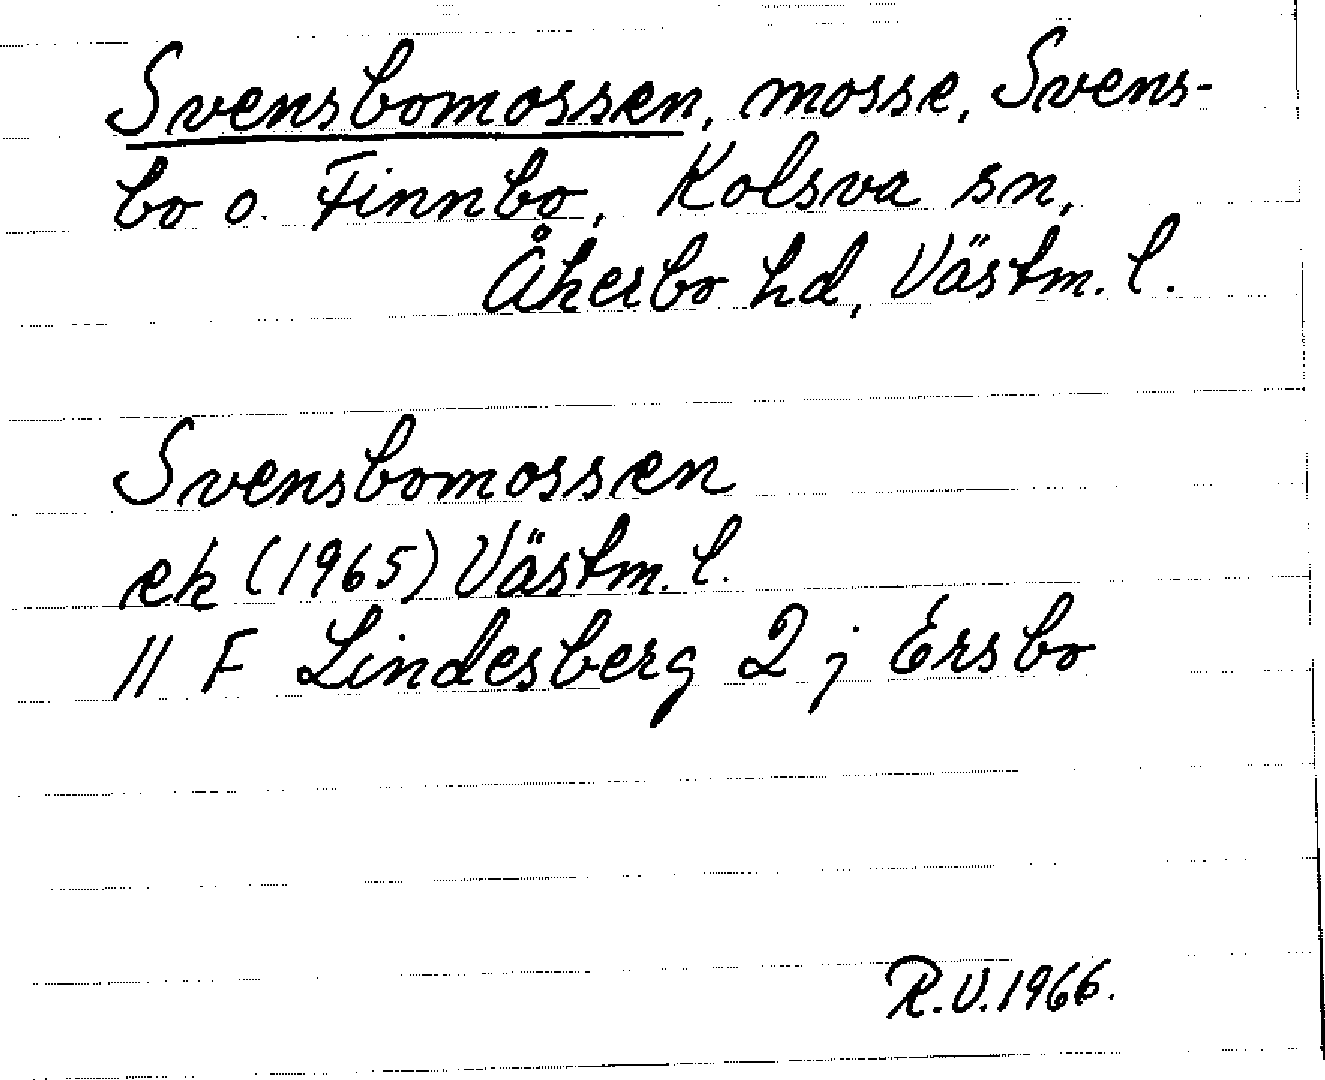 Svensbomossen, mosse, Svens-
bo o. Finnbo, Kolsva sn,
Åkerbo hd, Västm. l.
Svensbomossen
ek (1965) Västm. l.
11 F Lindesberg 2 j Ersbo
R.V. 1966.